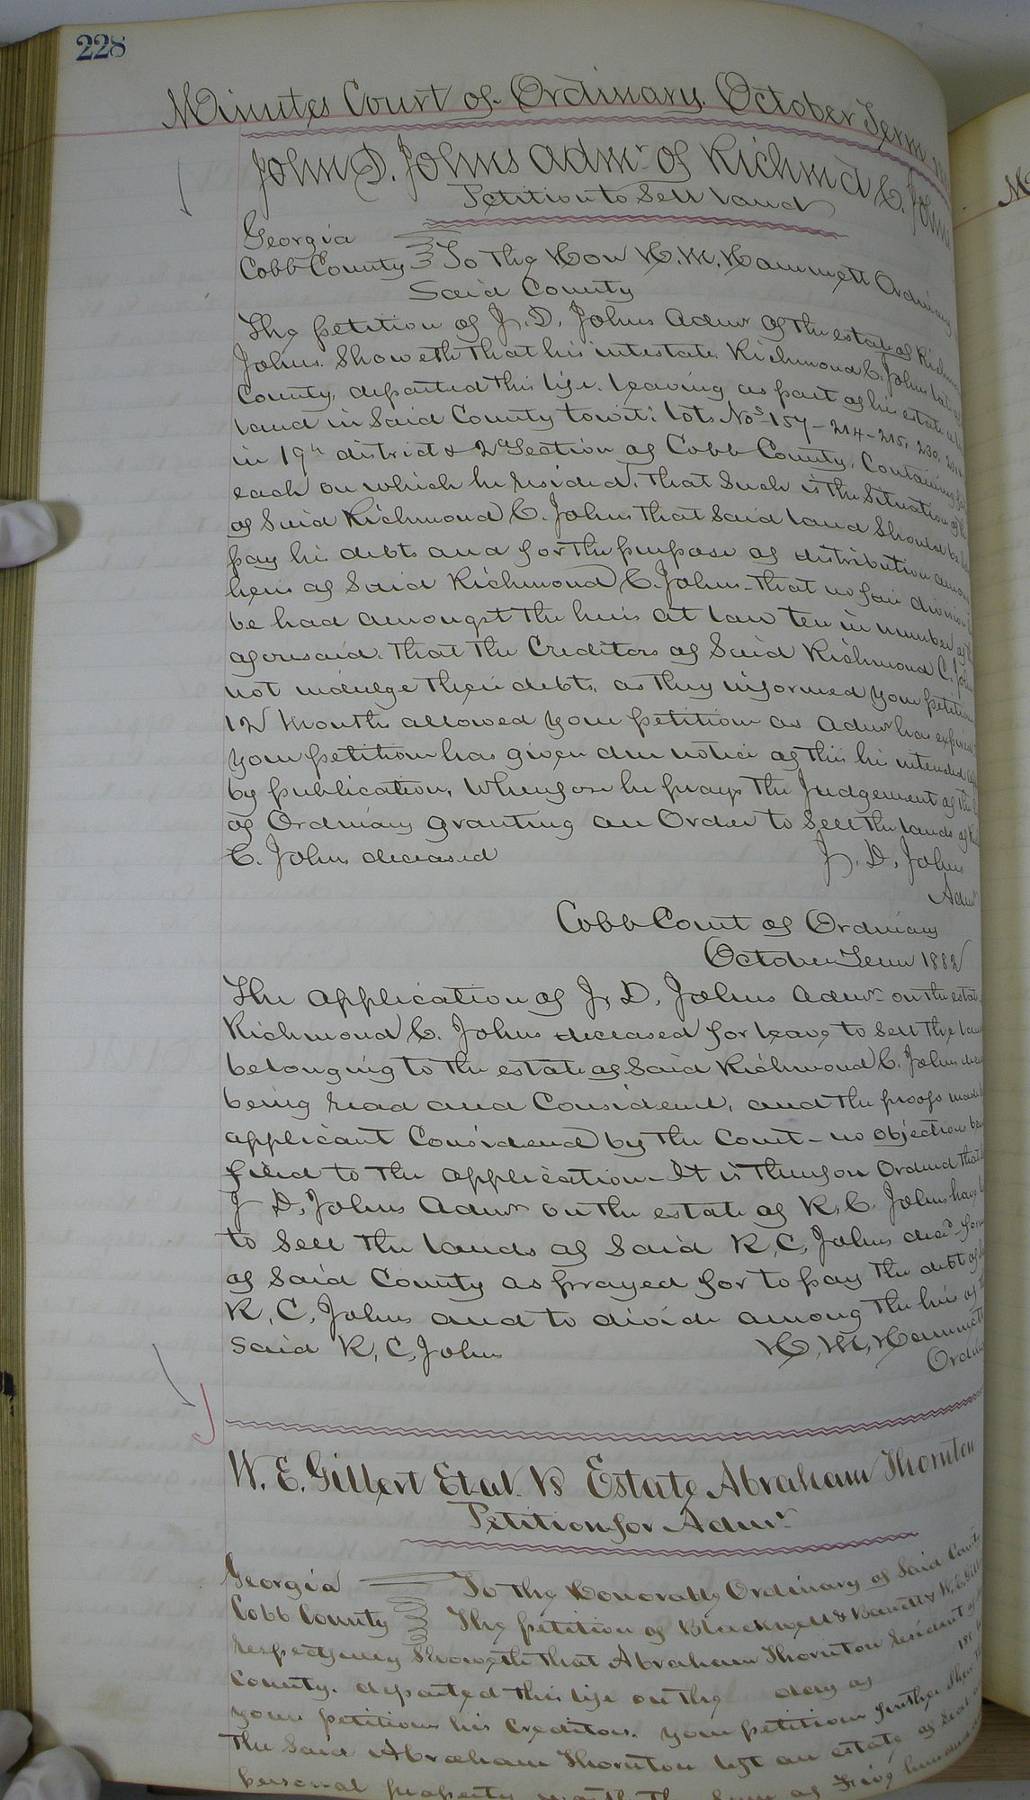 228
Minutes Court of Ordinary October Term
John D. Johns Admr of Richmd C. Johns
Petition to Sell Land
Georgia
Cobb County To the Hon H. M. Hammett Ordinary
Said County
The petition of J. D. Johns Admr of the estate of Richm
Johns Showeth that his intestate Richmond C. Johns late of
County, departed this life. Leaving as part of his estate
Land in Said County towit: Lots Nos 157 - 214 - 215, 230,
in 19th district & 2d Section of Cobb County, Containing
each on which he resided, that Such is the Situation of
of Said Richmond C. Johns that Said Land Should be
pay his debts and for the purpose of distribution among
heirs of Said Richmond C. Johns - that no fair division
be had amongst the heirs at Law ten in number of
aforesaid. that the Creditors of Said Richmond C. Johns
not indulge their debts, as they informed your petition
12 Months allowed your petition as Admr has expired
your petition has given due notice of this his intended
by publication, Wherefore he prays the Judgement of the
of Ordinary granting an Order to Sell the Lands of
C. Johns deceased J. D. Johns
Admr
Cobb Court of Ordinary
October Term 1882
The application of J. D. Johns Admr on the estate
Richmond C. Johns deceased for leave to Sell the
belonging to the estate of Said Richmond C. Johns
being read and Considered, and the proofs made
applicant Considered by the Court - no objection
filed to the application - It is therefore Ordered that
J D. Johns Admr on the estate of R. C. Johns have
to Sell the Lands of Said R. C. Johns decd
of Said County as prayed for to pay the debt of
R. C. Johns and to divide among the heirs of
Said R. C. Johns H. M. Hammett
Ordi
W. E. Gilbert Et al. Vs Estate Abraham Thornton
Petition for Admr
Georgia To the Honorable Ordinary of Said County
Cobb County The petition of Blackwell & Barrett & W. E.
respectfully Showeth that Abraham Thornton resident of
County. departed this life on the day of 18
your petitions his Creditors. your petitions further Show
the Said Abraham Thornton left an estate of real
personal property worth the Sum of Five hundred